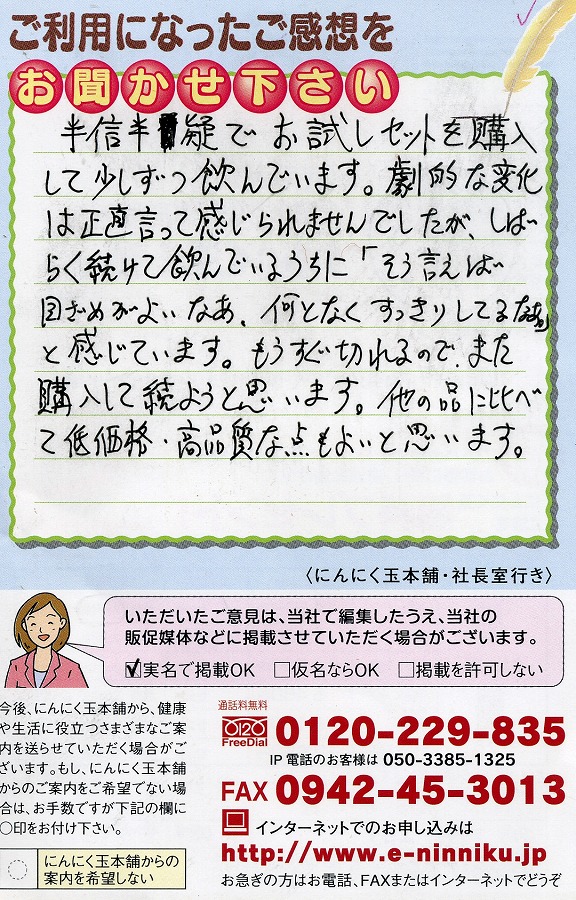 ご利用になったご感想を
お聞かせ下さい
半信半疑でお試しセットを購入
して少しずつ飲んでいます。劇的な変化
は正直言って感じられませんでしたが、しば
らく続けて飲んでいるうちに「そう言えば
目ざめがよいなあ、何となくすっきりしてるなあ」
と感じています。もうすぐ切れるので、また
購入して続ようと思います。他の品に比べ
て低価格・高品質な点もよいと思います。
〈にんにく玉本舗・社長室行き〉
いただいたご意見は、当社で編集したうえ、当社の
販促媒体などに掲載させていただく場合がございます。
☑実名で掲載OK □仮名ならOK □掲載を許可しない
今後、にんにく玉本舗から、健康
や生活に役立つさまざまなご案
内を送らせていただく場合がご
ざいます。もし、にんにく玉本舗
からのご案内をご希望でない場
合は、お手数ですが下記の欄に
〇印をお付け下さい。
にんにく玉本舗からの
案内を希望しない
通話料無料
0120
FreeDial
0120-229-835
IP電話のお客様は 050-3385-1325
FAX 0942-45-3013
インターネットでのお申し込みは
http://www.e-ninniku.jp
お急ぎの方はお電話、FAXまたはインターネットでどうぞ